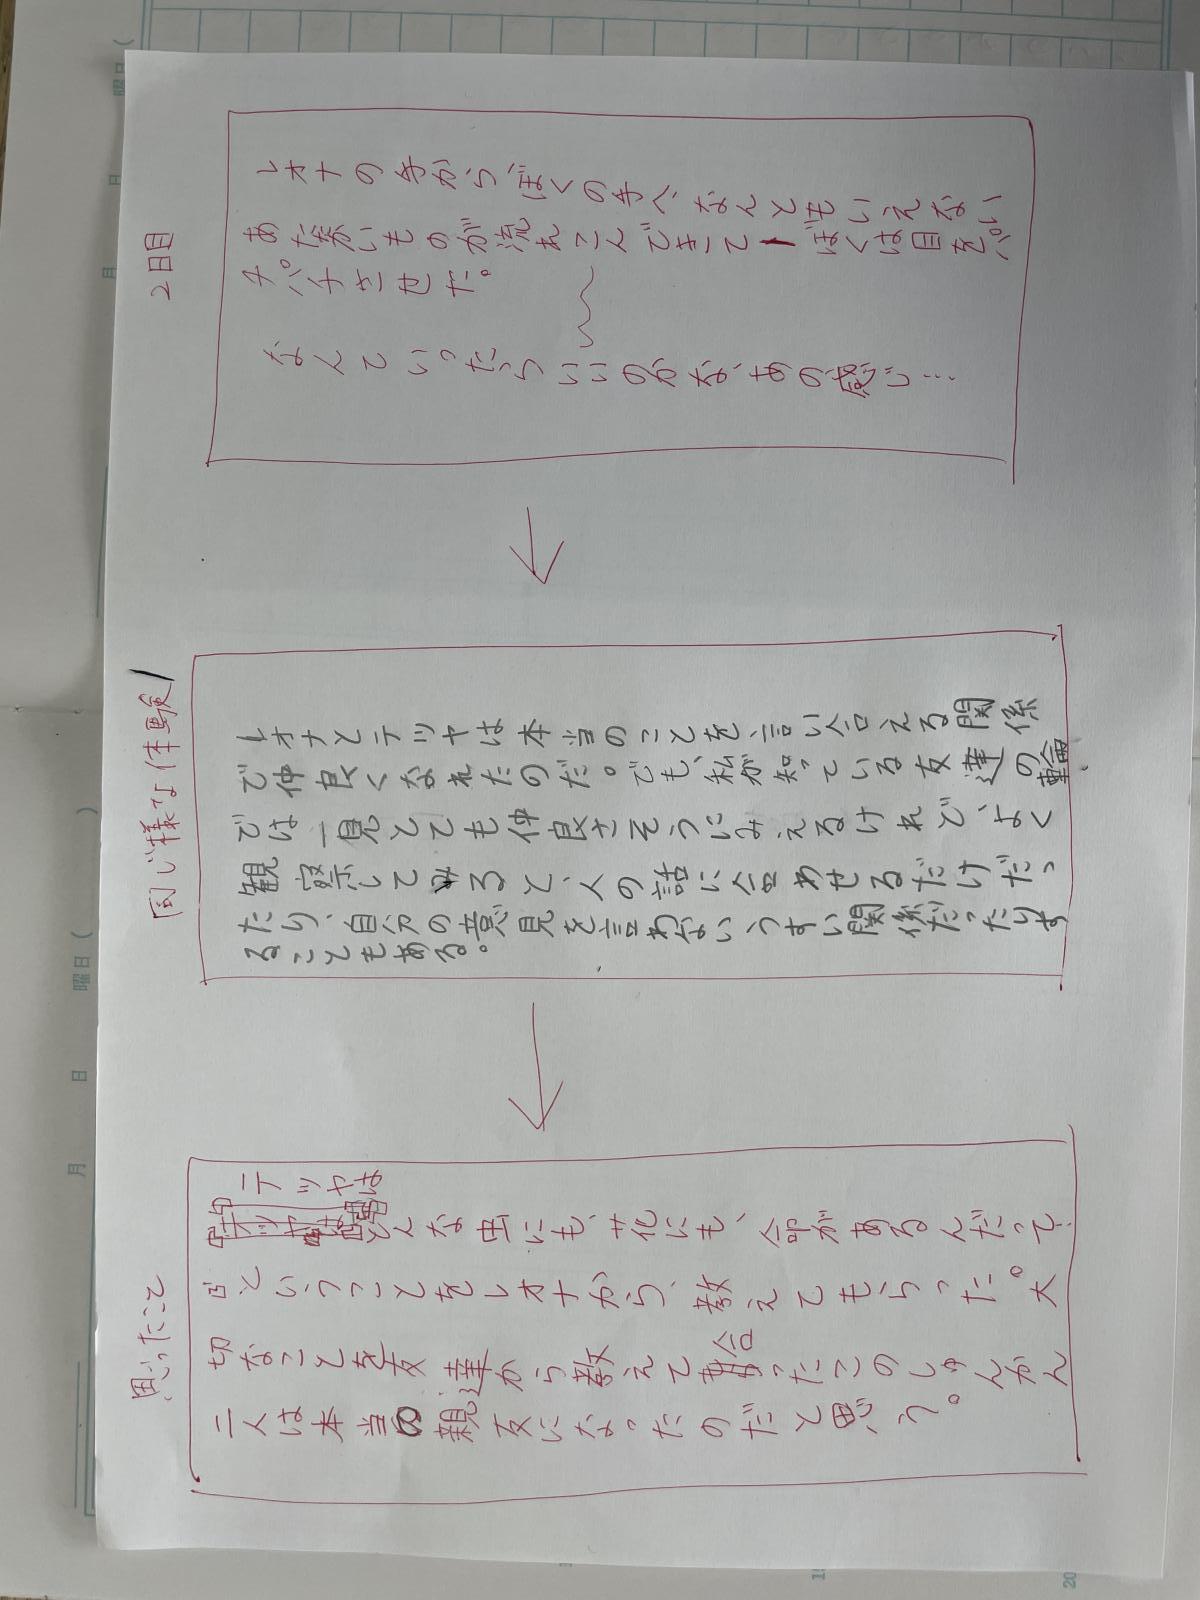 2日目
レオナの手から、ぼくの手へ、なんともいえな
あたたかいものが流れこんできて、ぼくは目をパ
チパチさせた。
なんていったらいいのかな、あの感じ…
同じ様な体験
レオナとテツヤは本当のことを、言い合える関係
で仲良くなれたのだ。でも、私が知っている友達の輪
では一見とても仲良さそうにみえるけれど、よく
観察してみると、人の話に合わせるだけだっ
たり、自分の意見を言わないうすい関係だったりす
ることもある。
思ったこと
テツヤは
どんな虫にも、花にも、命があるんだって
ということをレオナから、教えてもらった。大
切なことを友達から教えて
ったこのしゅんかん
二人は本当の親友になったのだと思う。
月 日 曜日(